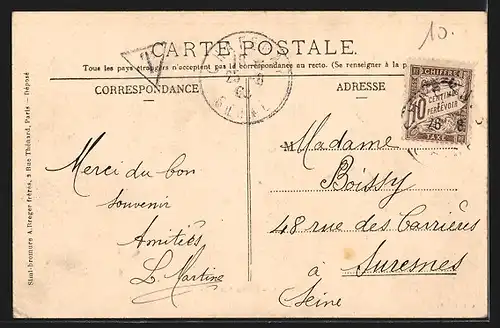 10.
CARTE POSTALE.
Tous les pays étrangers n'acceptent pas la correspondance au recto. (Se renseigner à la p
CORRESPONDANCE
ADRESSE
T
CHIFFRE
10 CENTIMES
A
PERCEVOIR
TAXE
Merci du bon
souvenir
Amitiés
L. Martine
M Madame
Boissy
48 rue des Carrières
à Suresnes
Seine
Simi-bromure A. Breger frères, 9 Rue Thénard, Paris — Déposé